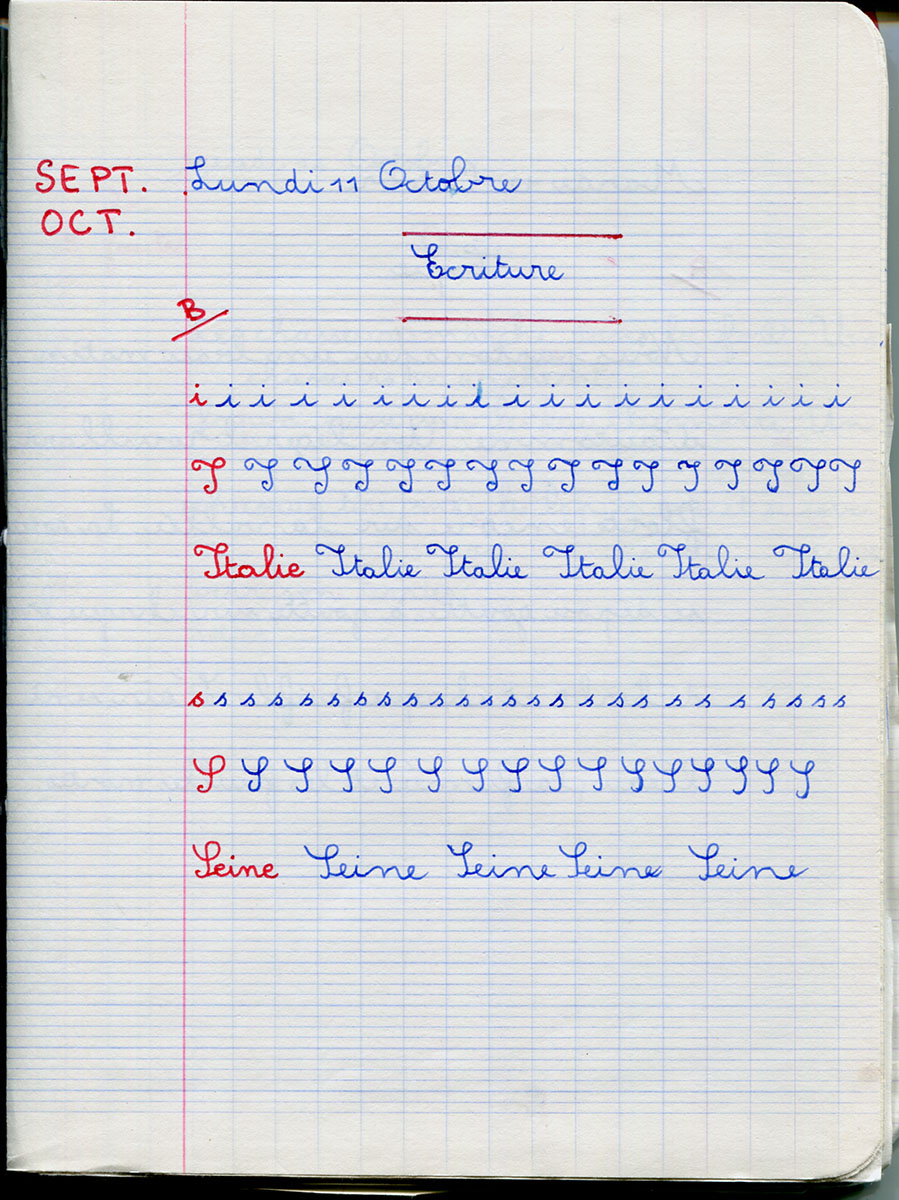 SEPT. Lundi 11 Octobre
OCT.
Ecriture
B
i i i i i i i i i i i i i i i i i i i
I I I I I I I I I I I I I I I I
Italie Italie Italie Italie Italie Italie
s s s s s s s s s s s s s s s s s s s s s s s s s
S S S S S S S S S S S S S S S S
Seine Seine Seine Seine Seine